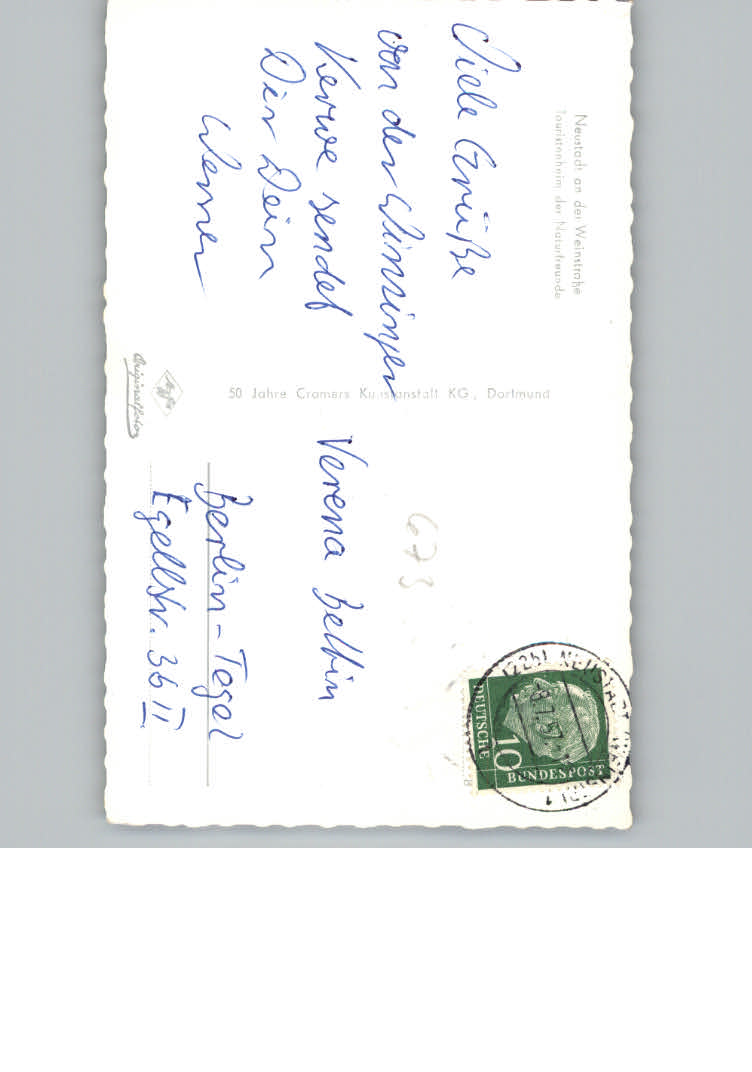 Neustadt an der Weinstraße
Touristenheim der Naturfreunde
Viele Grüße
von der Winzinger
Kerwe sendet
Dir Dein
Werner
50 Jahre Cramers Kunstanstalt KG, Dortmund
Agfa
Originalfoto
673
Verena Belbin
Berlin-Tegel
Egellstr. 36 II
(22b) NEUSTADT
-8.7.57
DEUTSCHE
10
BUNDESPOST